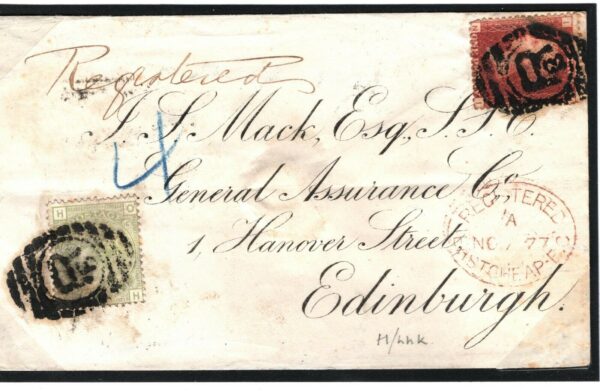 Registered
J. S. Mack, Esq., S.S.C.
4
General Assurance Co.
1, Hanover Street,
Edinburgh.
REGISTERED
A
NO 77
EASTCHEAP-E.C
H
POSTAGE
O
H
R
R